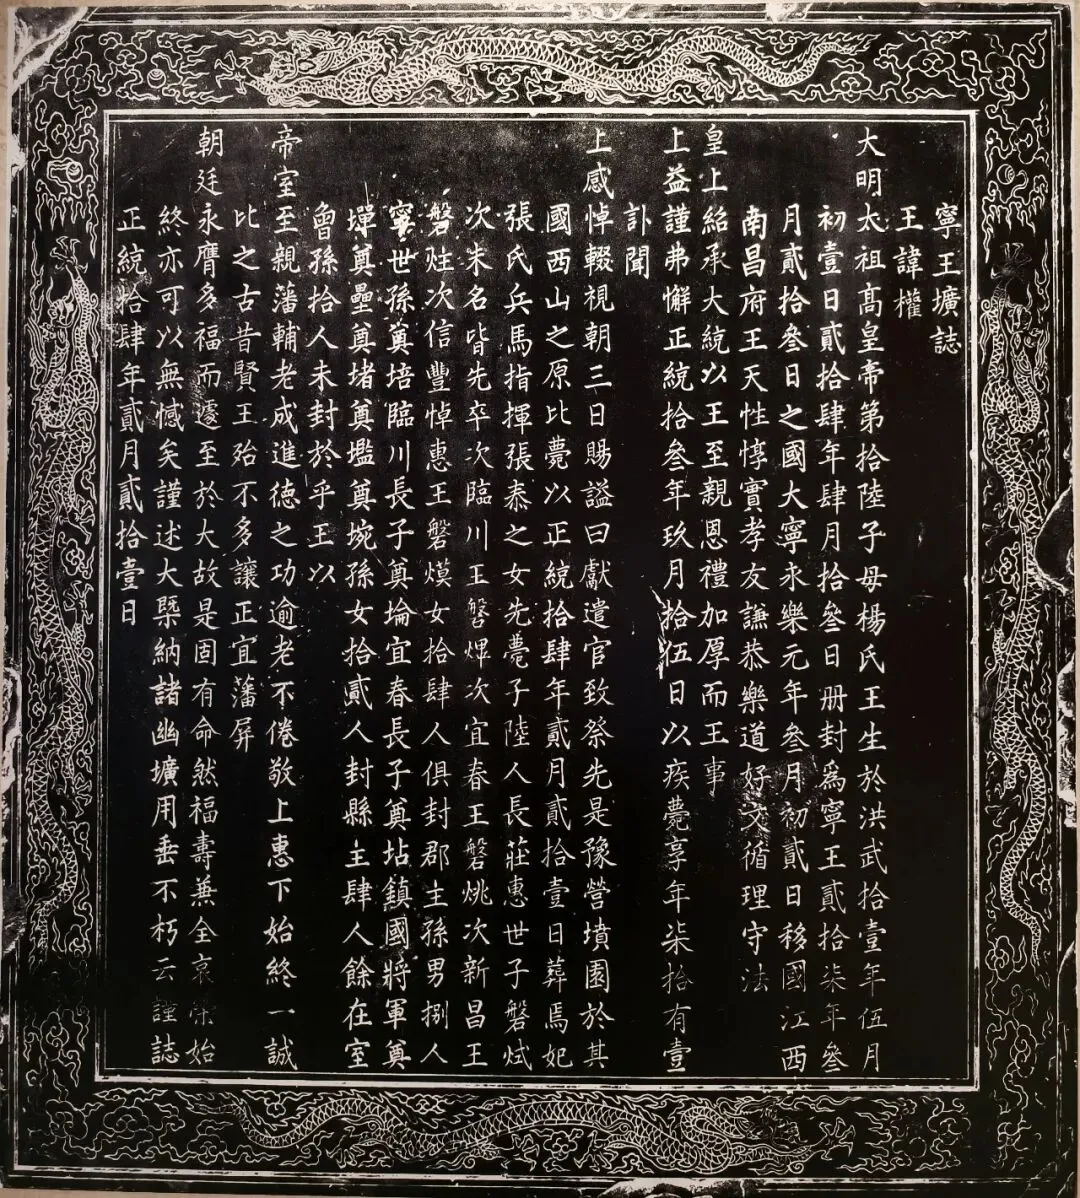 寧王壙誌
王諱權
大明太祖高皇帝第拾陸子母楊氏王生於洪武拾壹年伍月
初壹日貳拾肆年肆月拾叄日册封為寧王貳拾柒年叄
月貳拾叄日之國大寧永樂元年叄月初貳日移國江西
南昌府王天性惇實孝友謙恭樂道好文循理守法
皇上紹承大統以王至親恩禮加厚而王事
上益謹弗懈正統拾叄年玖月拾伍日以疾薨享年柒拾有壹
訃聞
上感悼輟視朝三日賜謚曰獻遣官致祭先是豫營墳園於其
國西山之原比薨以正統拾肆年貳月貳拾壹日葬焉妃
張氏兵馬指揮張泰之女先薨子陸人長莊惠世子磐烒
次未名皆先卒次臨川王磐熚次宜春王磐烑次新昌王
磐炷次信豐悼惠王磐熯女拾肆人俱封郡主孫男捌人
寧世孫奠培臨川長子奠埨宜春長子奠坫鎮國將軍奠
墠奠壘奠堵奠壏奠垸孫女拾貳人封縣主肆人餘在室
曾孫拾人未封於乎王以
帝室至親藩輔老成進德之功逾老不倦敬上惠下始終一誠
比之古昔賢王殆不多讓正宜藩屏
朝廷永膺多福而遽至於大故是固有命然福壽兼全哀榮始
終亦可以無憾矣謹述大槩納諸幽壙用垂不朽云謹誌
正統拾肆年貳月貳拾壹日